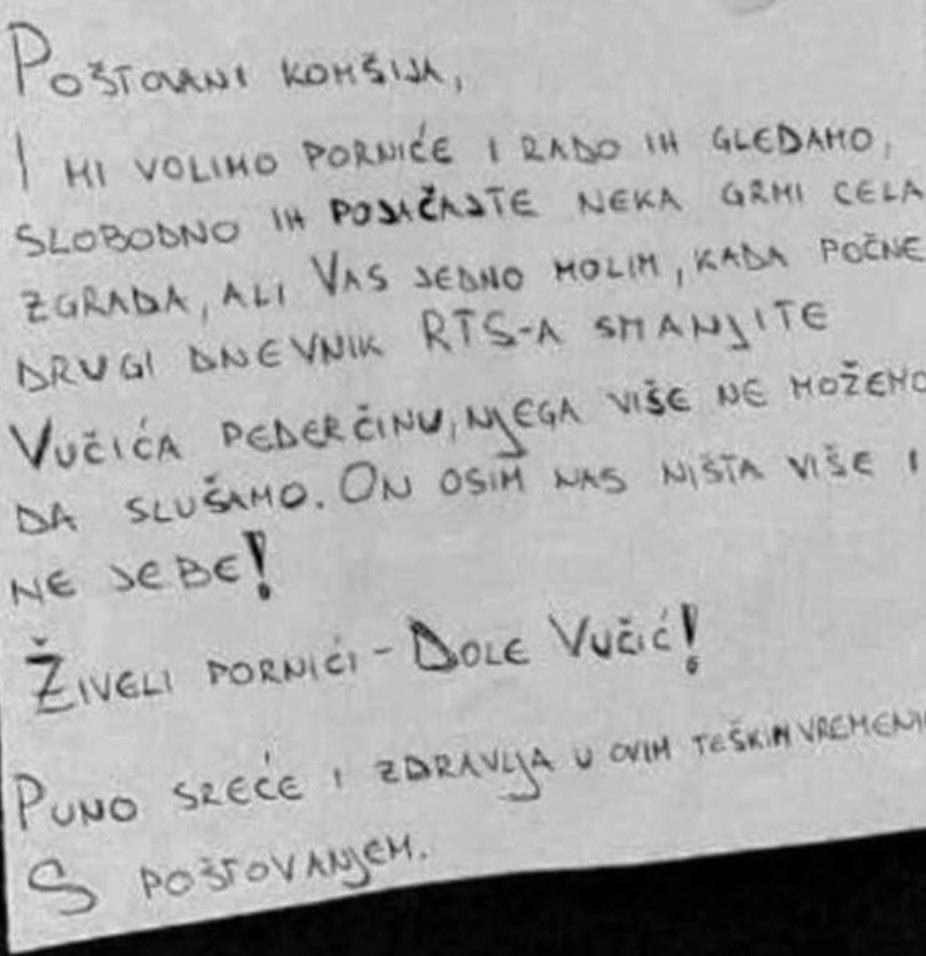 Poštovani komšija,
I mi volimo porniće i rado ih gledamo,
slobodno ih pojačajte neka grmi cela
zgrada, ali Vas jedno molim, kada počne
drugi dnevnik RTS-a smanjite
Vučića pederčinu, njega više ne možemo
da slušamo. On osim nas ništa više i
ne jebe!
Živeli pornići - Dole Vučić!
Puno sreće i zdravlja u ovim teškim
S poštovanjem.